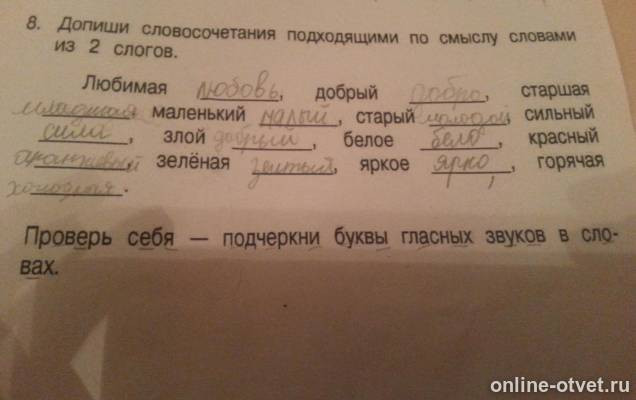 8. Допиши словосочетания подходящими по смыслу словами
из 2 слогов.
Любимая любовь, добрый добро, старшая
младшая маленький малый, старый молодой сильный
сила, злой добрый, белое бело, красный
оранжевый зелёная желтый, яркое ярко, горячая
холодная.
Проверь себя — подчеркни буквы гласных звуков в сло-
вах.
online-otvet.ru